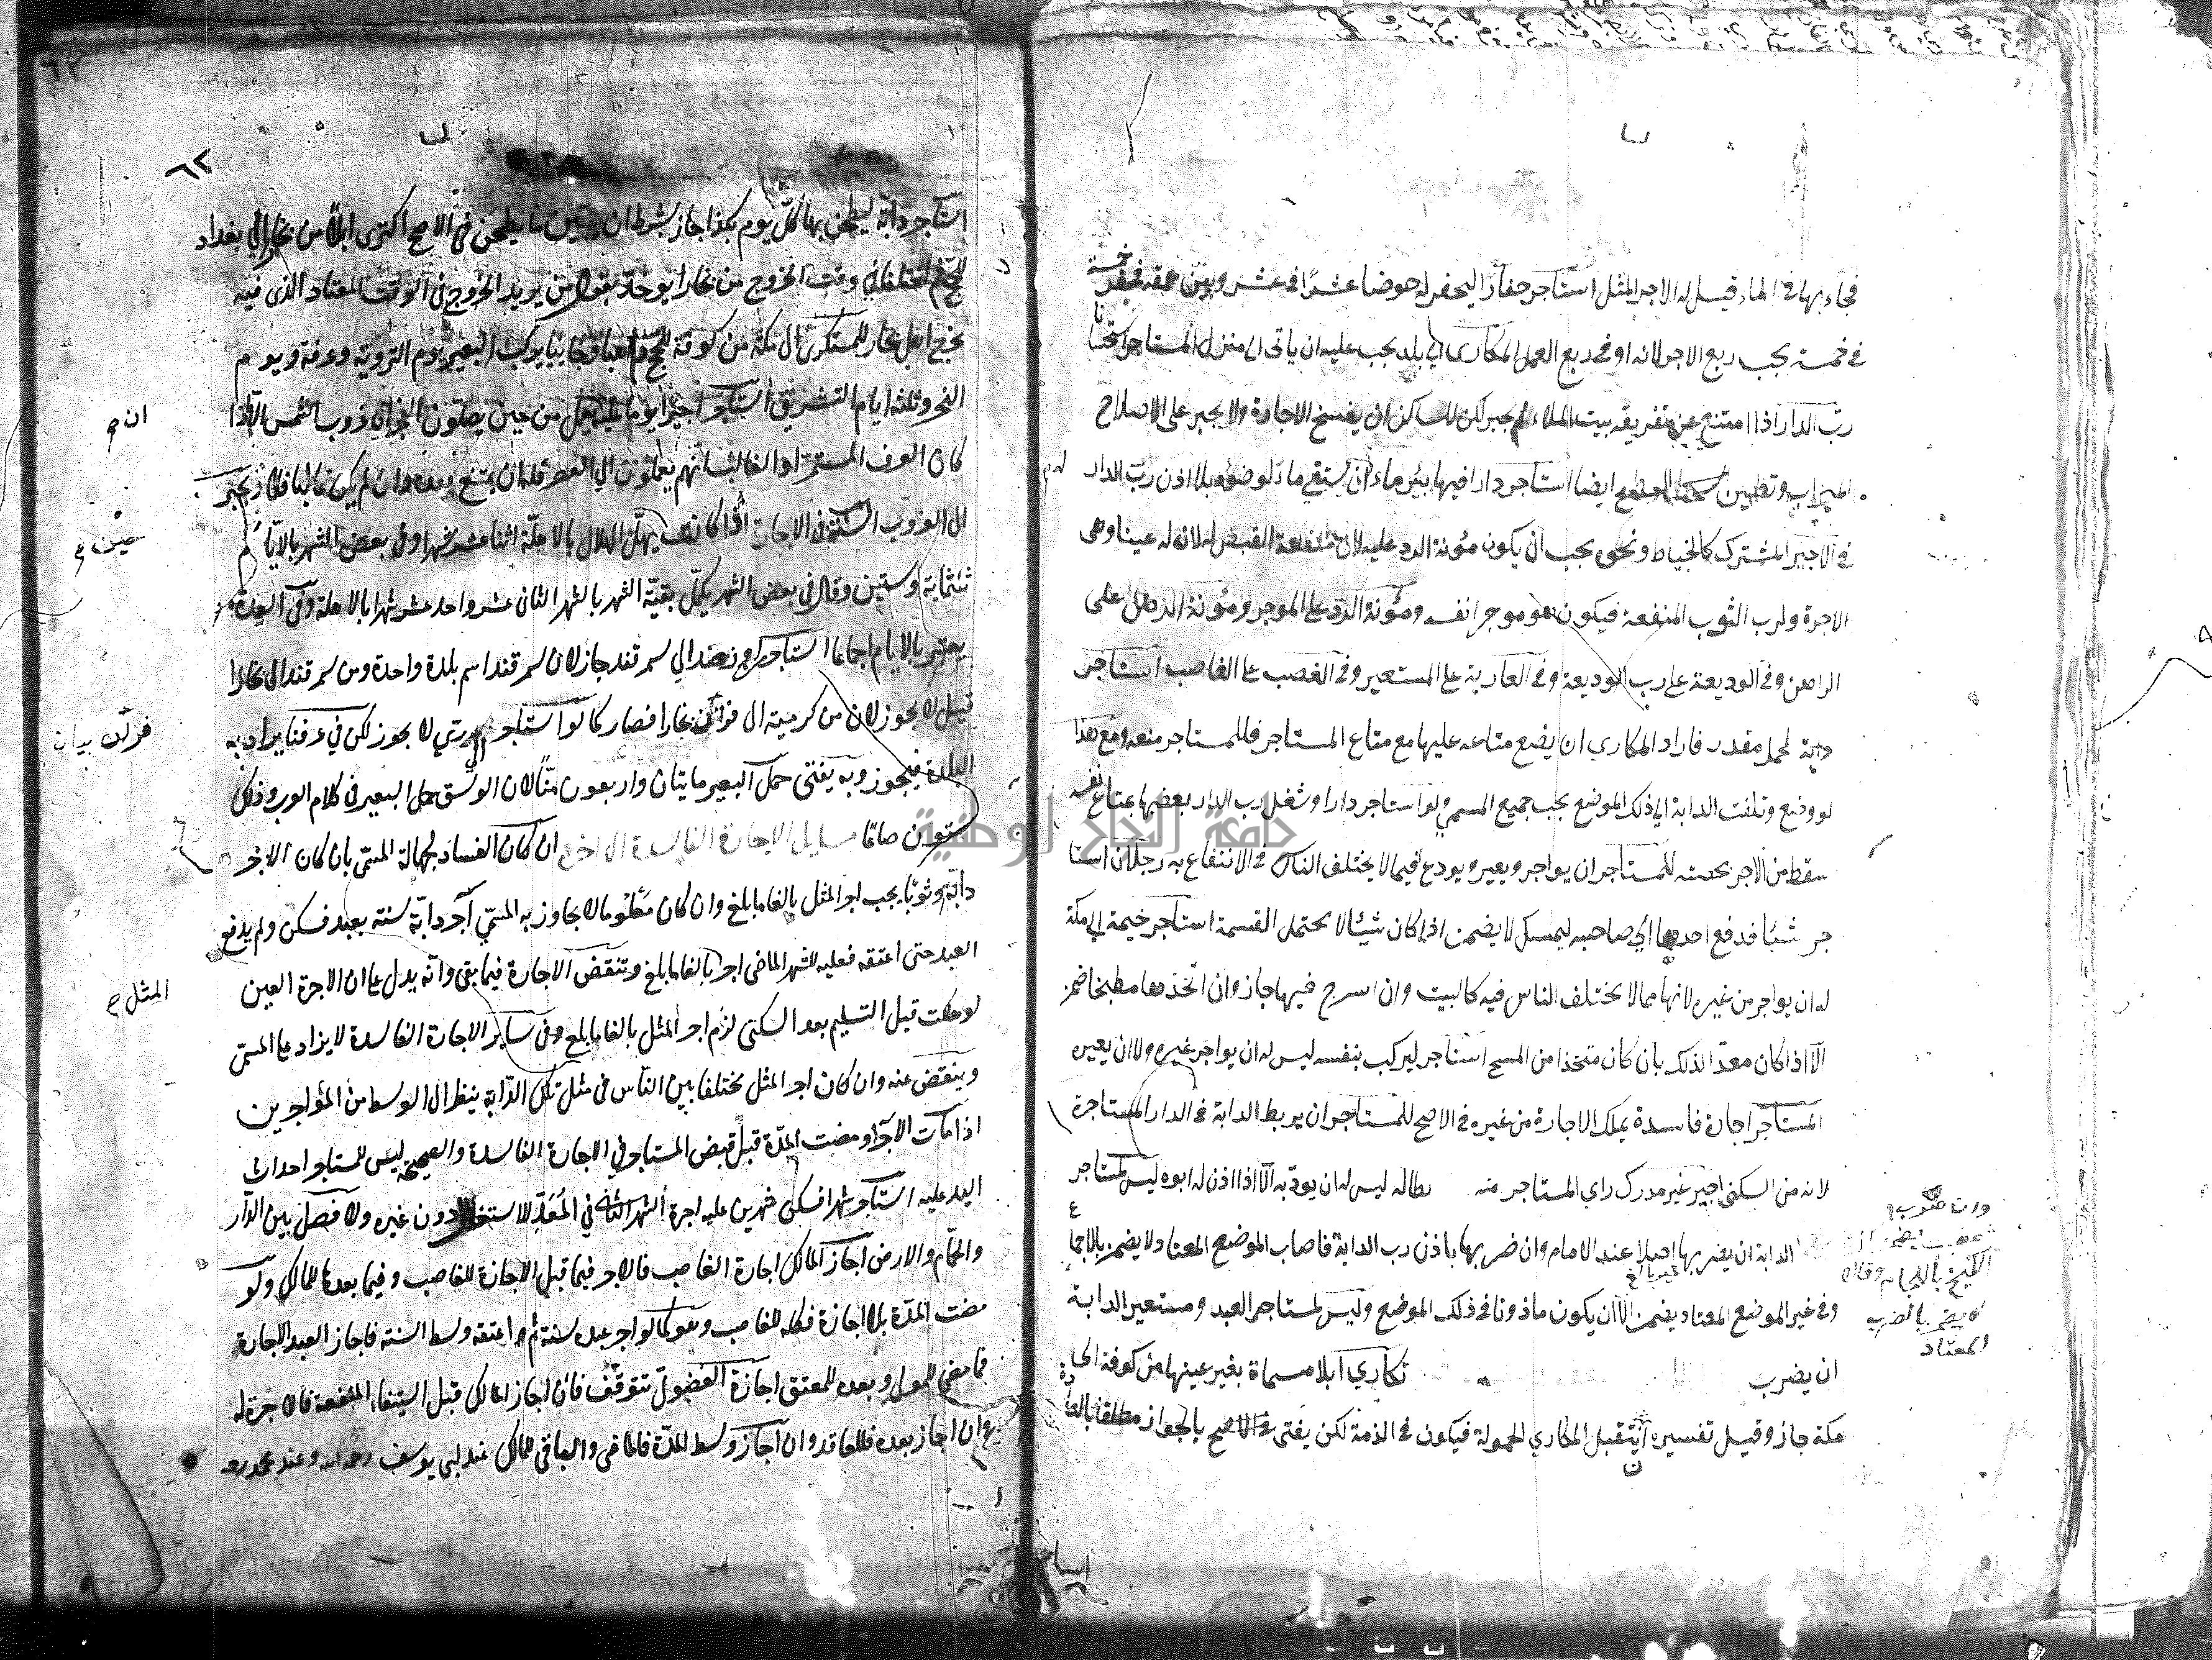 فجاء بها في الماء قيل له الاجر المثل استاجر حفارا ليحفر له حوضا عشرا في عشر وبين عمقه فحفر خمسة
في خمسة يجب ربع الاجر لانه اوفى ربع العمل المكاري الي بلد يجب عليه ان ياتى الى منزل المستاجر استحسانا
رب الدار اذا امتنع عن تفريقه بيت الملاء لم يجبر لكن للساكن ان يفسخ الاجارة ولا يجبر على الاصلاح
الميزاب وتطيين السطح ايضا استاجر دارا فيها بئر ماء له ان يستقي ماء لوضوئه بلا اذن رب الدار
في الاجير المشترك كالخياط ونحوه يجب ان يكون مئونة الرد عليه لان منفعة القبض له لانه له عينا وهى
الاجرة ولرب الثوب المنفعة فيكون هو موجر نفسه ومئونة الرد على الموجر ومئونة الرهن على
الراهن وفي الوديعة على رب الوديعة وفي العارية على المستعير وفي الغصب على الغاصب استاجر
دابة لحمل مقدر فاراد المكاري ان يضع متاعه عليها مع متاع المستاجر فللمستاجر منعه ومع هذا
لو وضع وتلفت الدابة الي ذلك الموضع يجب جميع المسمى ولو استاجر دارا وشغل رب الدار بعضها بمتاع نفسه
سقط من الاجر بحصته للمستاجر ان يواجر ويعير ويودع فيما لا يختلف الناس في الانتفاع به رجلان استا
جر شيئا فدفع احدهما الي صاحبه ليمسك لا يضمن اذا كان شيئا لا يحتمل القسمة استاجر خيمة الي مكة
له ان يواجر من غيره لانها مما لا يختلف الناس فيه كالبيت وان اسرج فيها جاز وان اتخذها مطبخا ضمن
الا اذا كان معدا لذلك بان كان متخذا من المسح استاجر ليركب بنفسه ليس له ان يواجر غيره ولا ان يعيره
المستاجر اجارة فاسدة يملك الاجارة من غيره في الاصح للمستاجر ان يربط الدابة في الدار المستاجرة
لانه من السكنى اجير غير مدرك راي المستاجر منه بطالة ليس له ان يودبه الا اذا اذن له ابوه ليس لمستاجر
الدابة ان يضربها اصلا عند الامام وان ضربها باذن رب الدابة فاصاب الموضع المعتاد لا يضمن بالاجماع
وفي غير الموضع المعتاد يضمن الا ان يكون ماذونا في ذلك الموضع وليس لمستاجر العبد ومستعير الدابة
ان يضرب تكاري ابلا مسماة بغير عينها من كوفة الى
مكة جاز وقيل تفسيره ان يتقبل المكاري الحمولة فيكون في الذمة لكن يفتى في الاصح بالجواز مطلقا
لا يضمن بالضرب
المعتاد
٦٢
استاجر دابة ليطحن بها كل يوم بكذا جاز بشرط ان يتبين ما يطحن في الاصح اكترى ابلا من بخارا الي بغداد
للحج فاختلفا في وقت الخروج من بخارا يوخذ بقول من يريد الخروج في الوقت المعتاد الذى فيه
يخرج اهل بخارا للمستكرى الى مكة من كوفة للحج يركب البعير يوم التروية وعرفة ويوم
النحر وثلثة ايام التشريق استاجر اجيرا يوما يعمل من حين يصلون الفجر الى غروب الشمس الا اذا
كان العرف المستمر او الغالب انهم يعملون الي العصر فله ان يمتنع بعده وان لم يكن غالبا فلا يجبر
الى الغروب السنة في الاجارة اذا كانت يهل الهلال بالاهلة اثنا عشر شهرا وفي بعض الشهر بالايام
ثلثماية وستين وقال في بعض الشهر يكمل بقية الشهر بالشهر الثاني عشر واحد عشر شهرا بالاهلة وفى العدة
يعتبر بالايام اجماعا استاجر الي سمرقند جاز لان سمرقند اسم بلدة واحدة ومن سمرقند الى بخارا
قيل لا يجوز لان من كرمينه الى بخارا فصار كما لو استاجر الي ري لا يجوز لكن في عرفنا يراد به
البلدة فيجوز وبه يفتى حمل البعير مايتان واربعون منا لان الوسق حمل البعير في كلام العرب وذلك
ستون صاعا مسايل الاجارة الفاسدة ان كان الفساد لجهالة المسمى بان كان الاجر
دابة وثوبا يجب اجر المثل بالغا ما بلغ وان كان معلوما لا يجاوز به المسمى آجر دابة سنة بعبد فسكن ولم يدفع
العبد حتى اعتقه فعليه للشهر الماضى اجر بالغا ما بلغ وتنقض الاجارة فيما بقى وانه يدل على ان الاجرة العين
لو هلكت قبل التسليم بعد السكنى لزم اجر المثل بالغا ما بلغ وفي ساير الاجارة الفاسدة لا يزاد على المسمى
وينقض عنه وان كان اجر المثل مختلفا بين الناس في مثل تلك الدابة ينظر الى الوسط من المؤاجرين
اذا مات الاجر او مضت المدة قبل قبض المستاجر في الاجارة الفاسدة والصحيحة ليس للمستاجر احداث
اليد عليه استاجر شهرا فسكن شهرين عليه اجرة الشهر الثاني في المعد للاستغلال دون غيره ولا فصل بين الدار
والحمام والارض اجاز المالك اجارة الغاصب فالاجر فيما قبل الاجازة للغاصب وفيما بعدها للمالك ولو
مضت المدة بلا اجازة فكله للغاصب وهو كما لو اجر عبده سنة ثم اعتقه وسط السنة فاجاز العبد الاجارة
فما مضى للمولى وبعده للمعتق اجازة الفضولي تتوقف فان اجاز المالك قبل استيفاء المنفعة فالاجرة له
وان اجاز بعده فللعاقد وان اجاز وسط المدة فالماضي والباقى للمالك عند ابي يوسف رحمه الله وعند محمد رحمه
ان
المثل
جامعة النجاح الوطنية